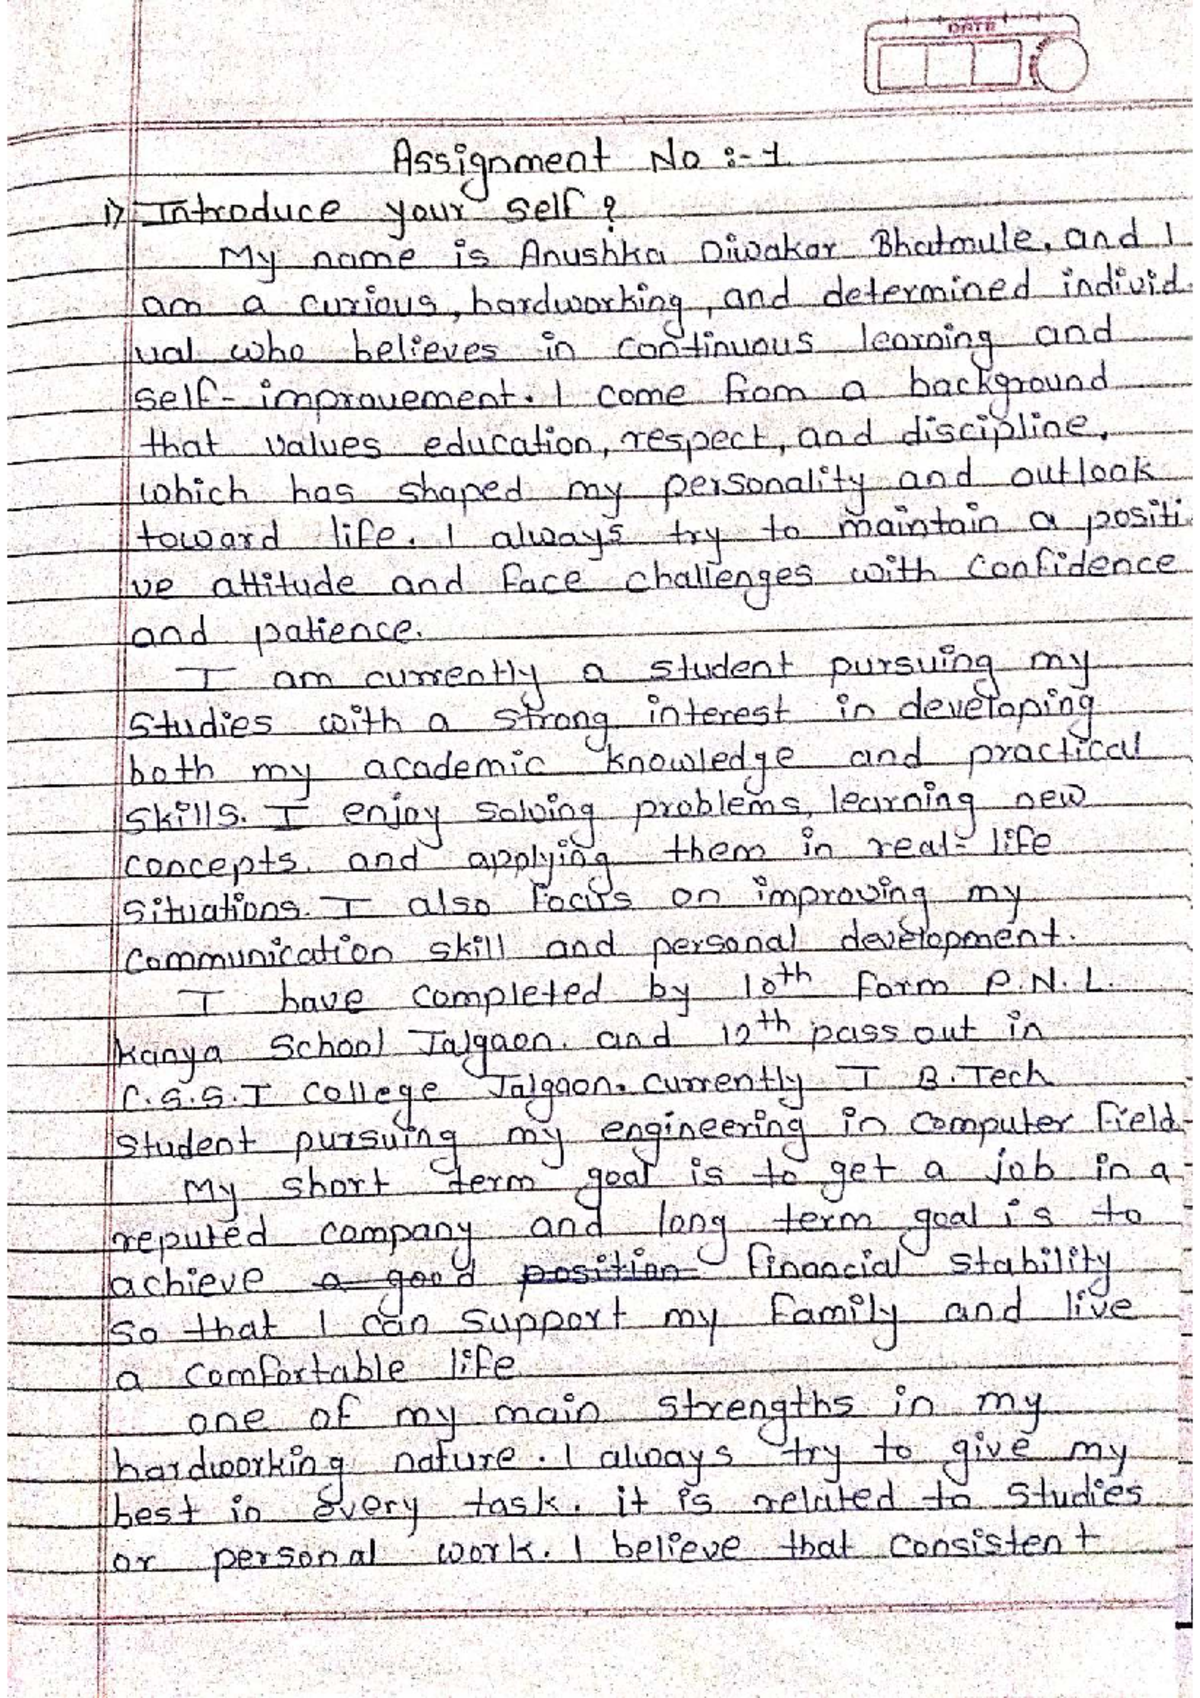 DATE
Assignment No :- 1
1) Introduce your self ?
My name is Anushka Diwakar Bhatmule, and I
am a curious, hardworking, and determined individ-
ual who believes in continuous learning and
self-improvement. I come from a background
that values education, respect, and discipline,
which has shaped my personality and outlook
toward life. I always try to maintain a positi-
ve attitude and face challenges with confidence
and patience.
I am currently a student pursuing my
studies with a strong interest in developing
both my academic knowledge and practical
skills. I enjoy solving problems, learning new
concepts, and applying them in real-life
situations. I also focus on improving my
communication skill and personal development.
I have completed by 10th form P.N.L.
Kanya School Jalgaon. and 12th pass out in
C.S.S.I College Jalgaon. currently I B.Tech
student pursuing my engineering in computer field.
My short term goal is to get a job in a
reputed company and long term goal is to
achieve a good position financial stability
so that I can support my family and live
a comfortable life
one of my main strengths in my
hardworking nature. I always try to give my
best in every task. it is related to studies
or personal work. I believe that consistent